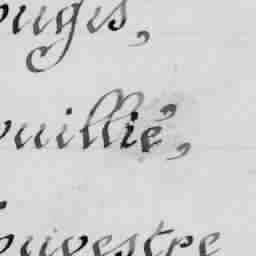 ouges,
ouillié,
ouvestre